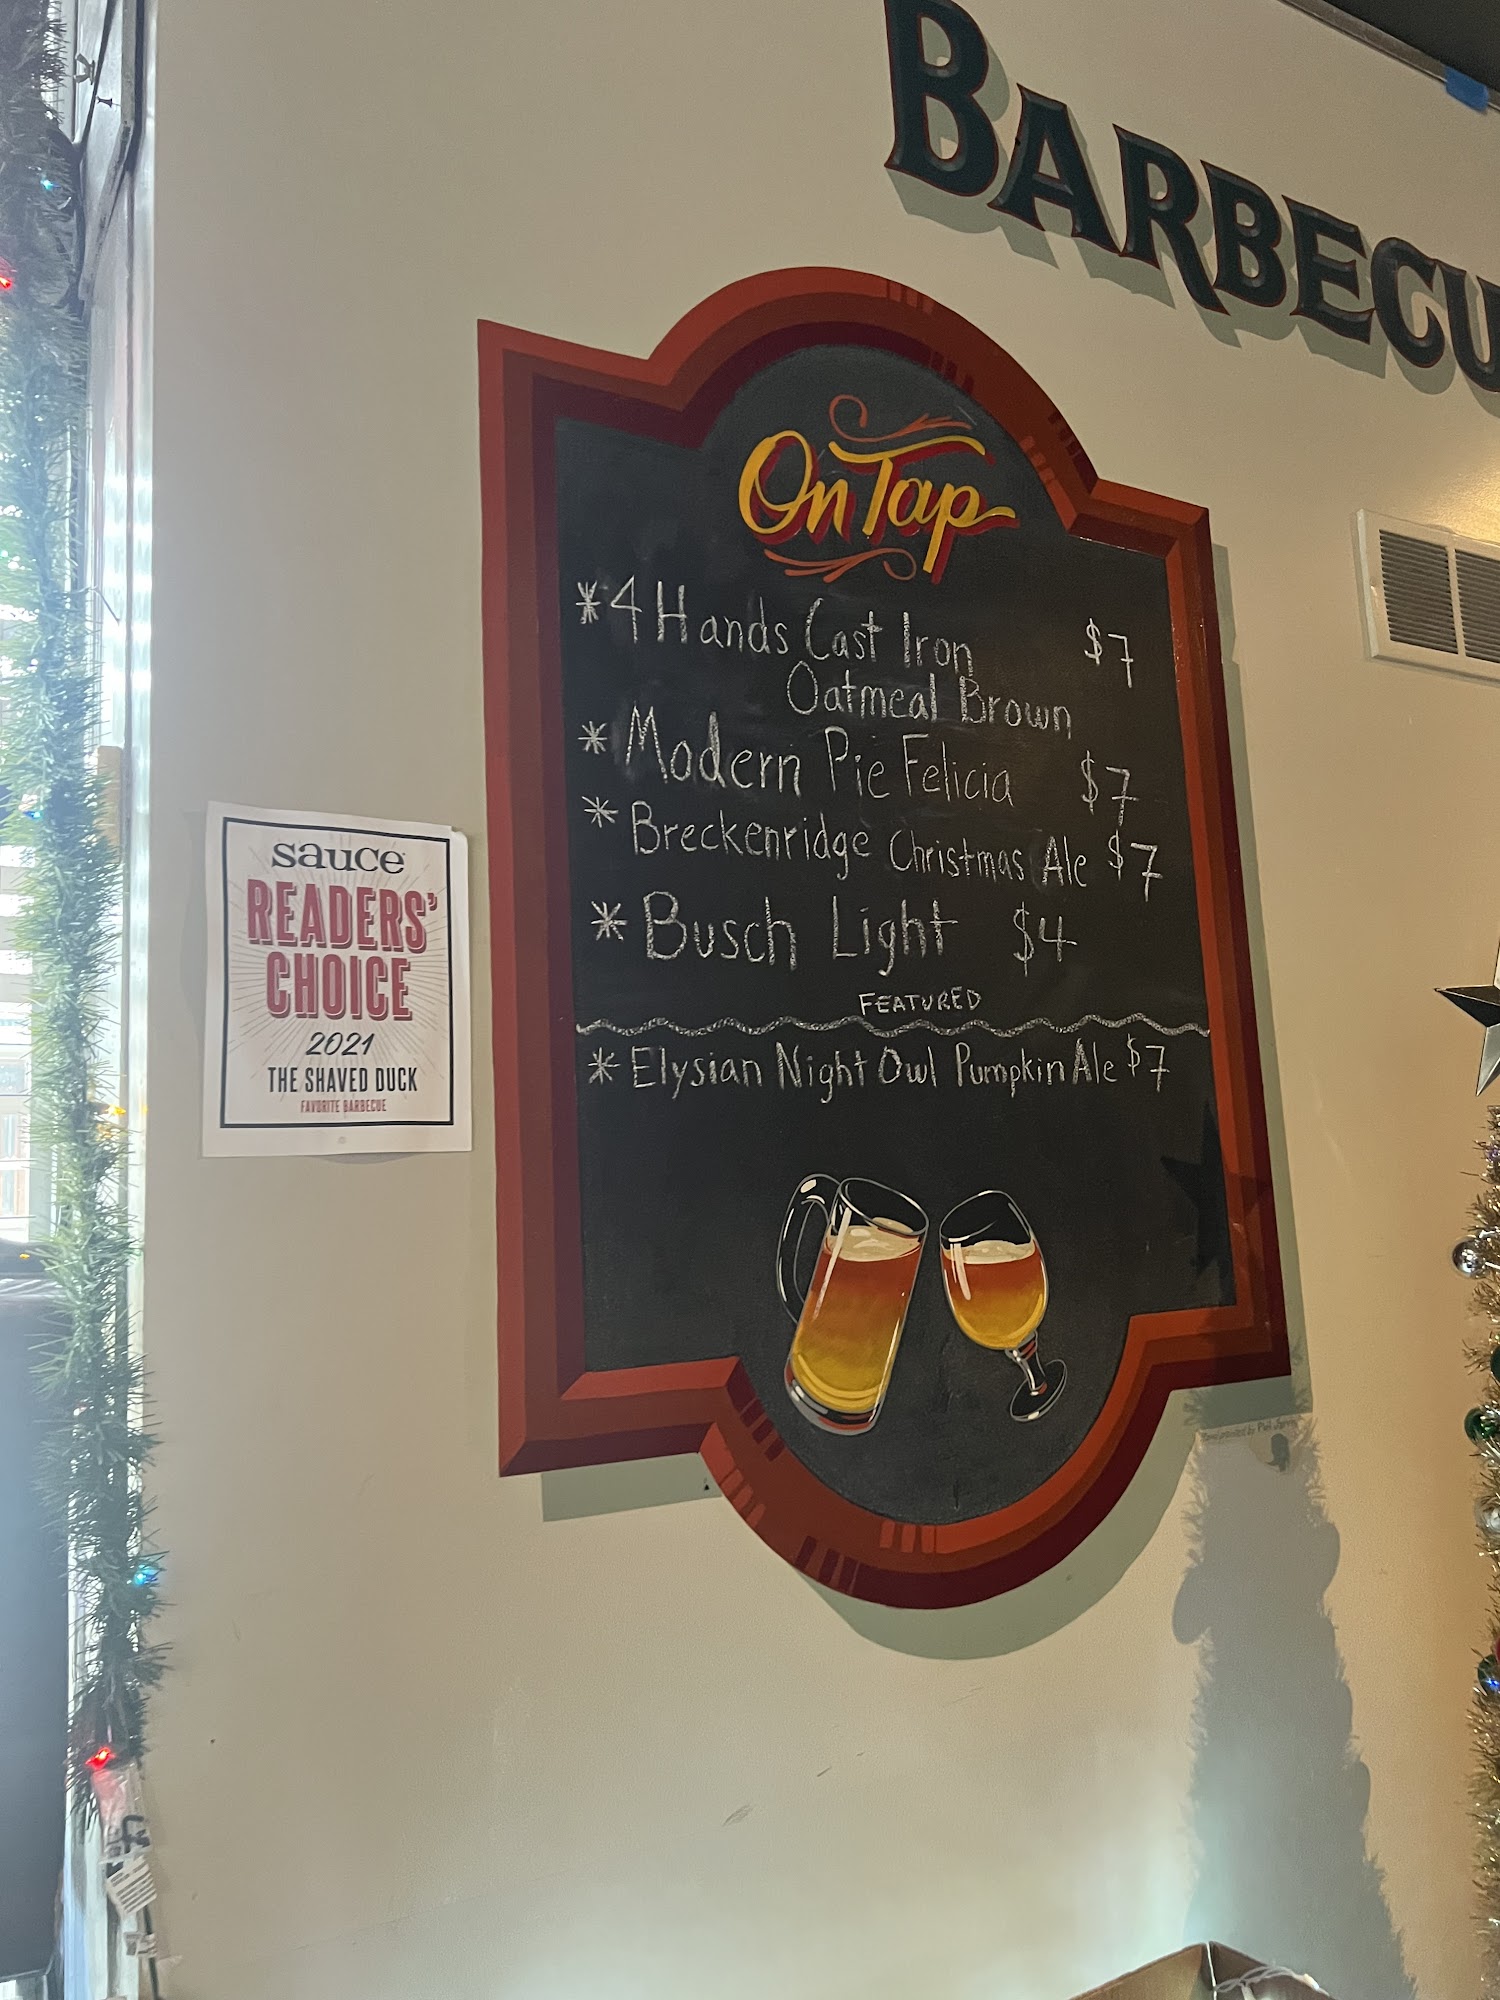 BARBECU
On Tap
*4 Hands Cast Iron $7
Oatmeal Brown
*Modern Pie Felicia $7
*Breckenridge Christmas Ale $7
*Busch Light $4
FEATURED
*Elysian Night Owl Pumpkin Ale $7
sauce
READERS'
CHOICE
2021
THE SHAVED DUCK
FAVORITE BARBECUE